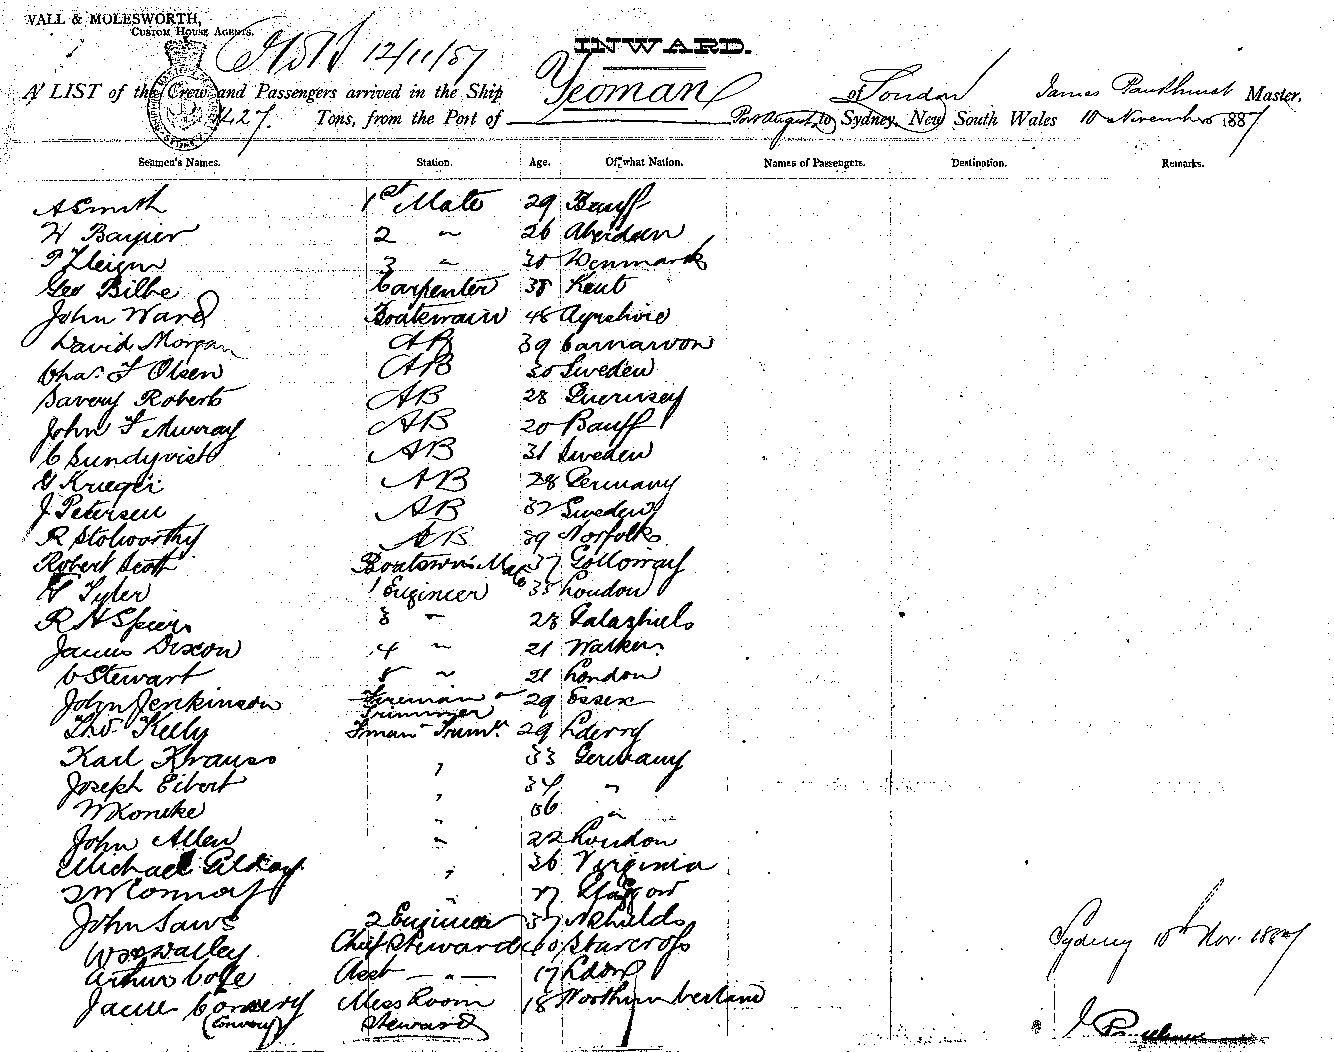 VALL & MOLESWORTH,
CUSTOM HOUSE AGENTS.
12/11/87
INWARD.
A LIST of the Crew and Passengers arrived in the Ship Yeoman of London James Parkhurst Master,
1427 Tons, from the Port of Port Augusta to Sydney, New South Wales 10 November 1887
Seamen's Names. Station. Age. Of what Nation. Names of Passengers. Destination. Remarks.
A Smith 1st Mate 29 Banff
W 2 " 26 Aberdeen
P 3 " 30 Denmark
Geo Bilbe Carpenter 38 Kent
John Ward Boatswain 48 Ayrshire
David Morgan AB 39 Carnarvon
Chas. F Olsen AB 30 Sweden
Savery Roberts AB 28 Guernsey
John F Murray AB 20 Banff
C Sundqvist AB 31 Sweden
G Krueger AB 28 Germany
J Petersen AB 32 Sweden
R Stolworthy AB 39 Norfolk
Robert Scott Boatswns Mate 37 Golloway
Tyler 1 Engineer 33 London
R H Speirs 3 " 28 Galashiels
James Dixon 4 " 21 Walker
C Stewart 5 " 21 London
John Jenkinson Fireman & Trimmer 29 Essex
Thos Kelly Fman Trimr. 29 Lderry
Karl Krauss " 33 Germany
Joseph Eibert " 34 "
W Koneke " 36 "
John Allen " 22 London
Michael Gildray " 36 Virginia
" 27 Glasgow
John Laws 2 Engineer 37 N Shields
Walley Chief Steward 40 Starcross
Arthur Cole Asst " 17 Ldon
James Convery Mess Room 18 Northumberland
(Convery) Steward
Sydney 10th Nov. 1887
J Parkhurst